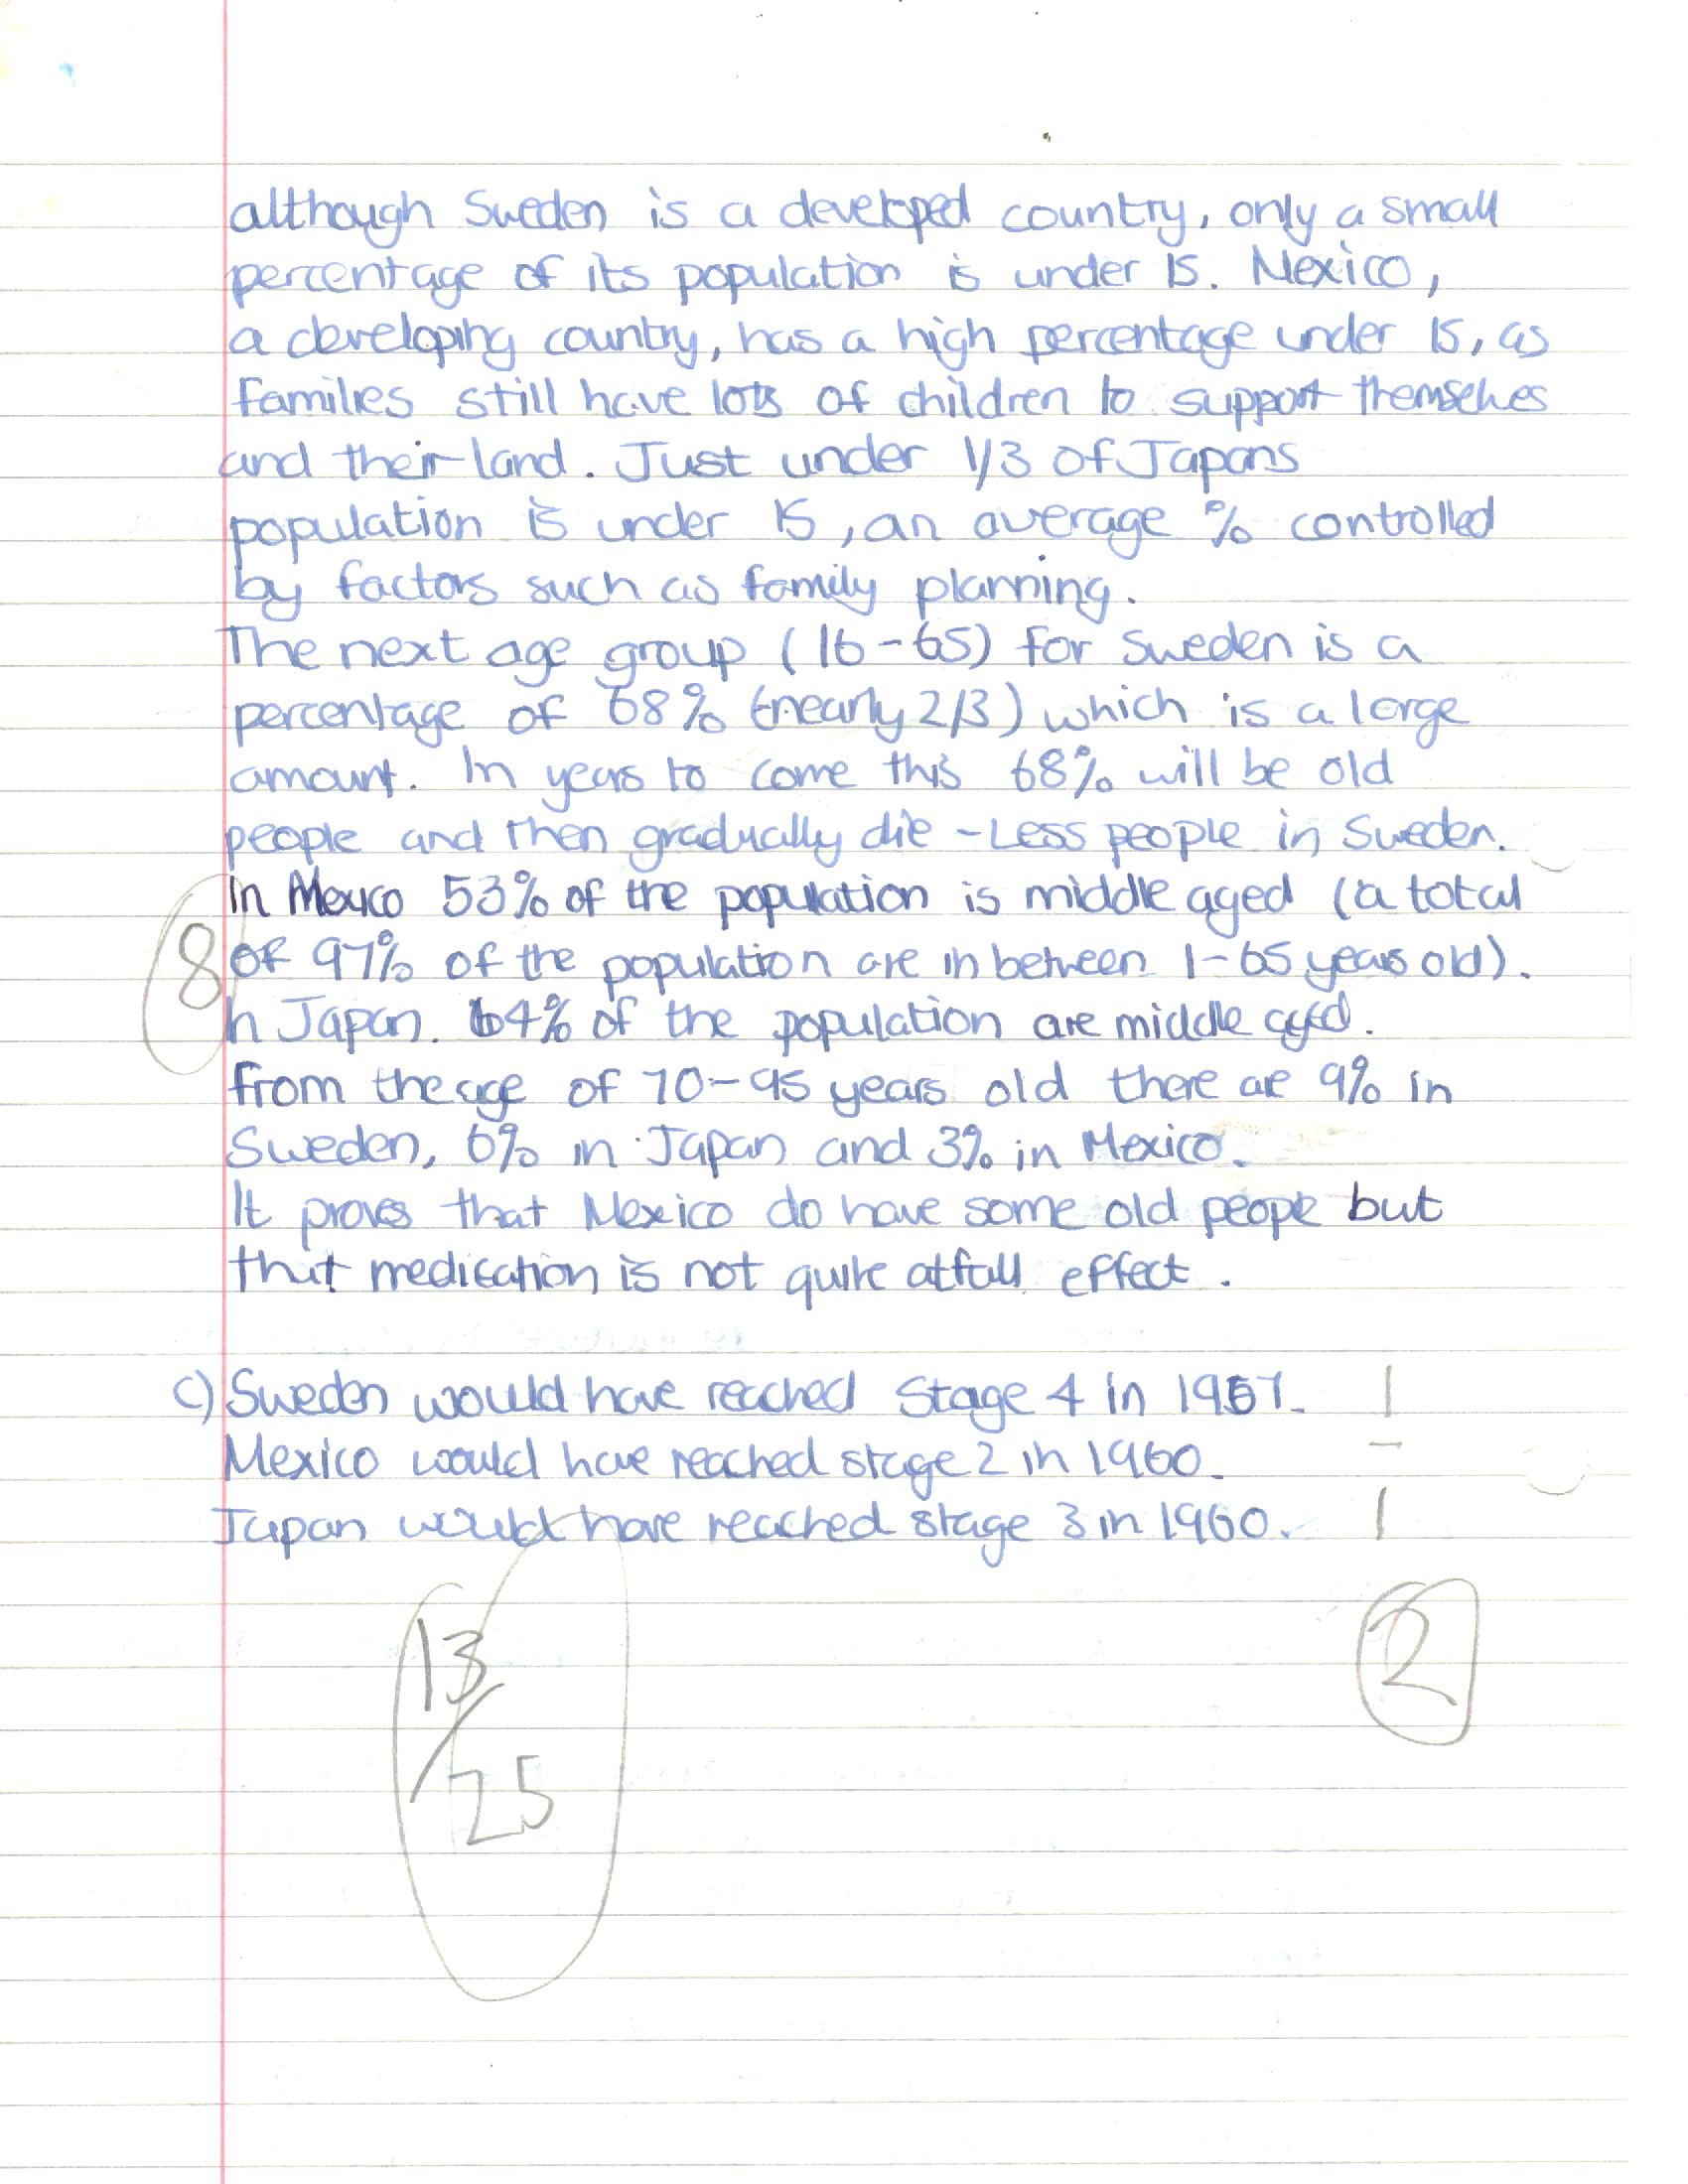 although Sweden is a developed country, only a small
percentage of its population is under 15. Mexico,
a developing country, has a high percentage under 15, as
families still have lots of children to support themselves
and their land. Just under 1/3 of Japans
population is under 15, an average % controlled
by factors such as family planning.
The next age group (16-65) for Sweden is a
percentage of 68% (nearly 2/3) which is a large
amount. In years to come this 68% will be old
people and then gradually die - Less people in Sweden.
In Mexico 53% of the population is middle aged (a total
8 of 97% of the population are in between 1-65 years old).
In Japan. 64% of the population are middle aged.
From the age of 70-95 years old there are 9% in
Sweden, 6% in Japan and 3% in Mexico.
It proves that Mexico do have some old people but
that medication is not quite at full effect.
c) Sweden would have reached Stage 4 in 1957. 1
Mexico would have reached stage 2 in 1960. -
Japan would have reached stage 3 in 1960. 1
13/25
2